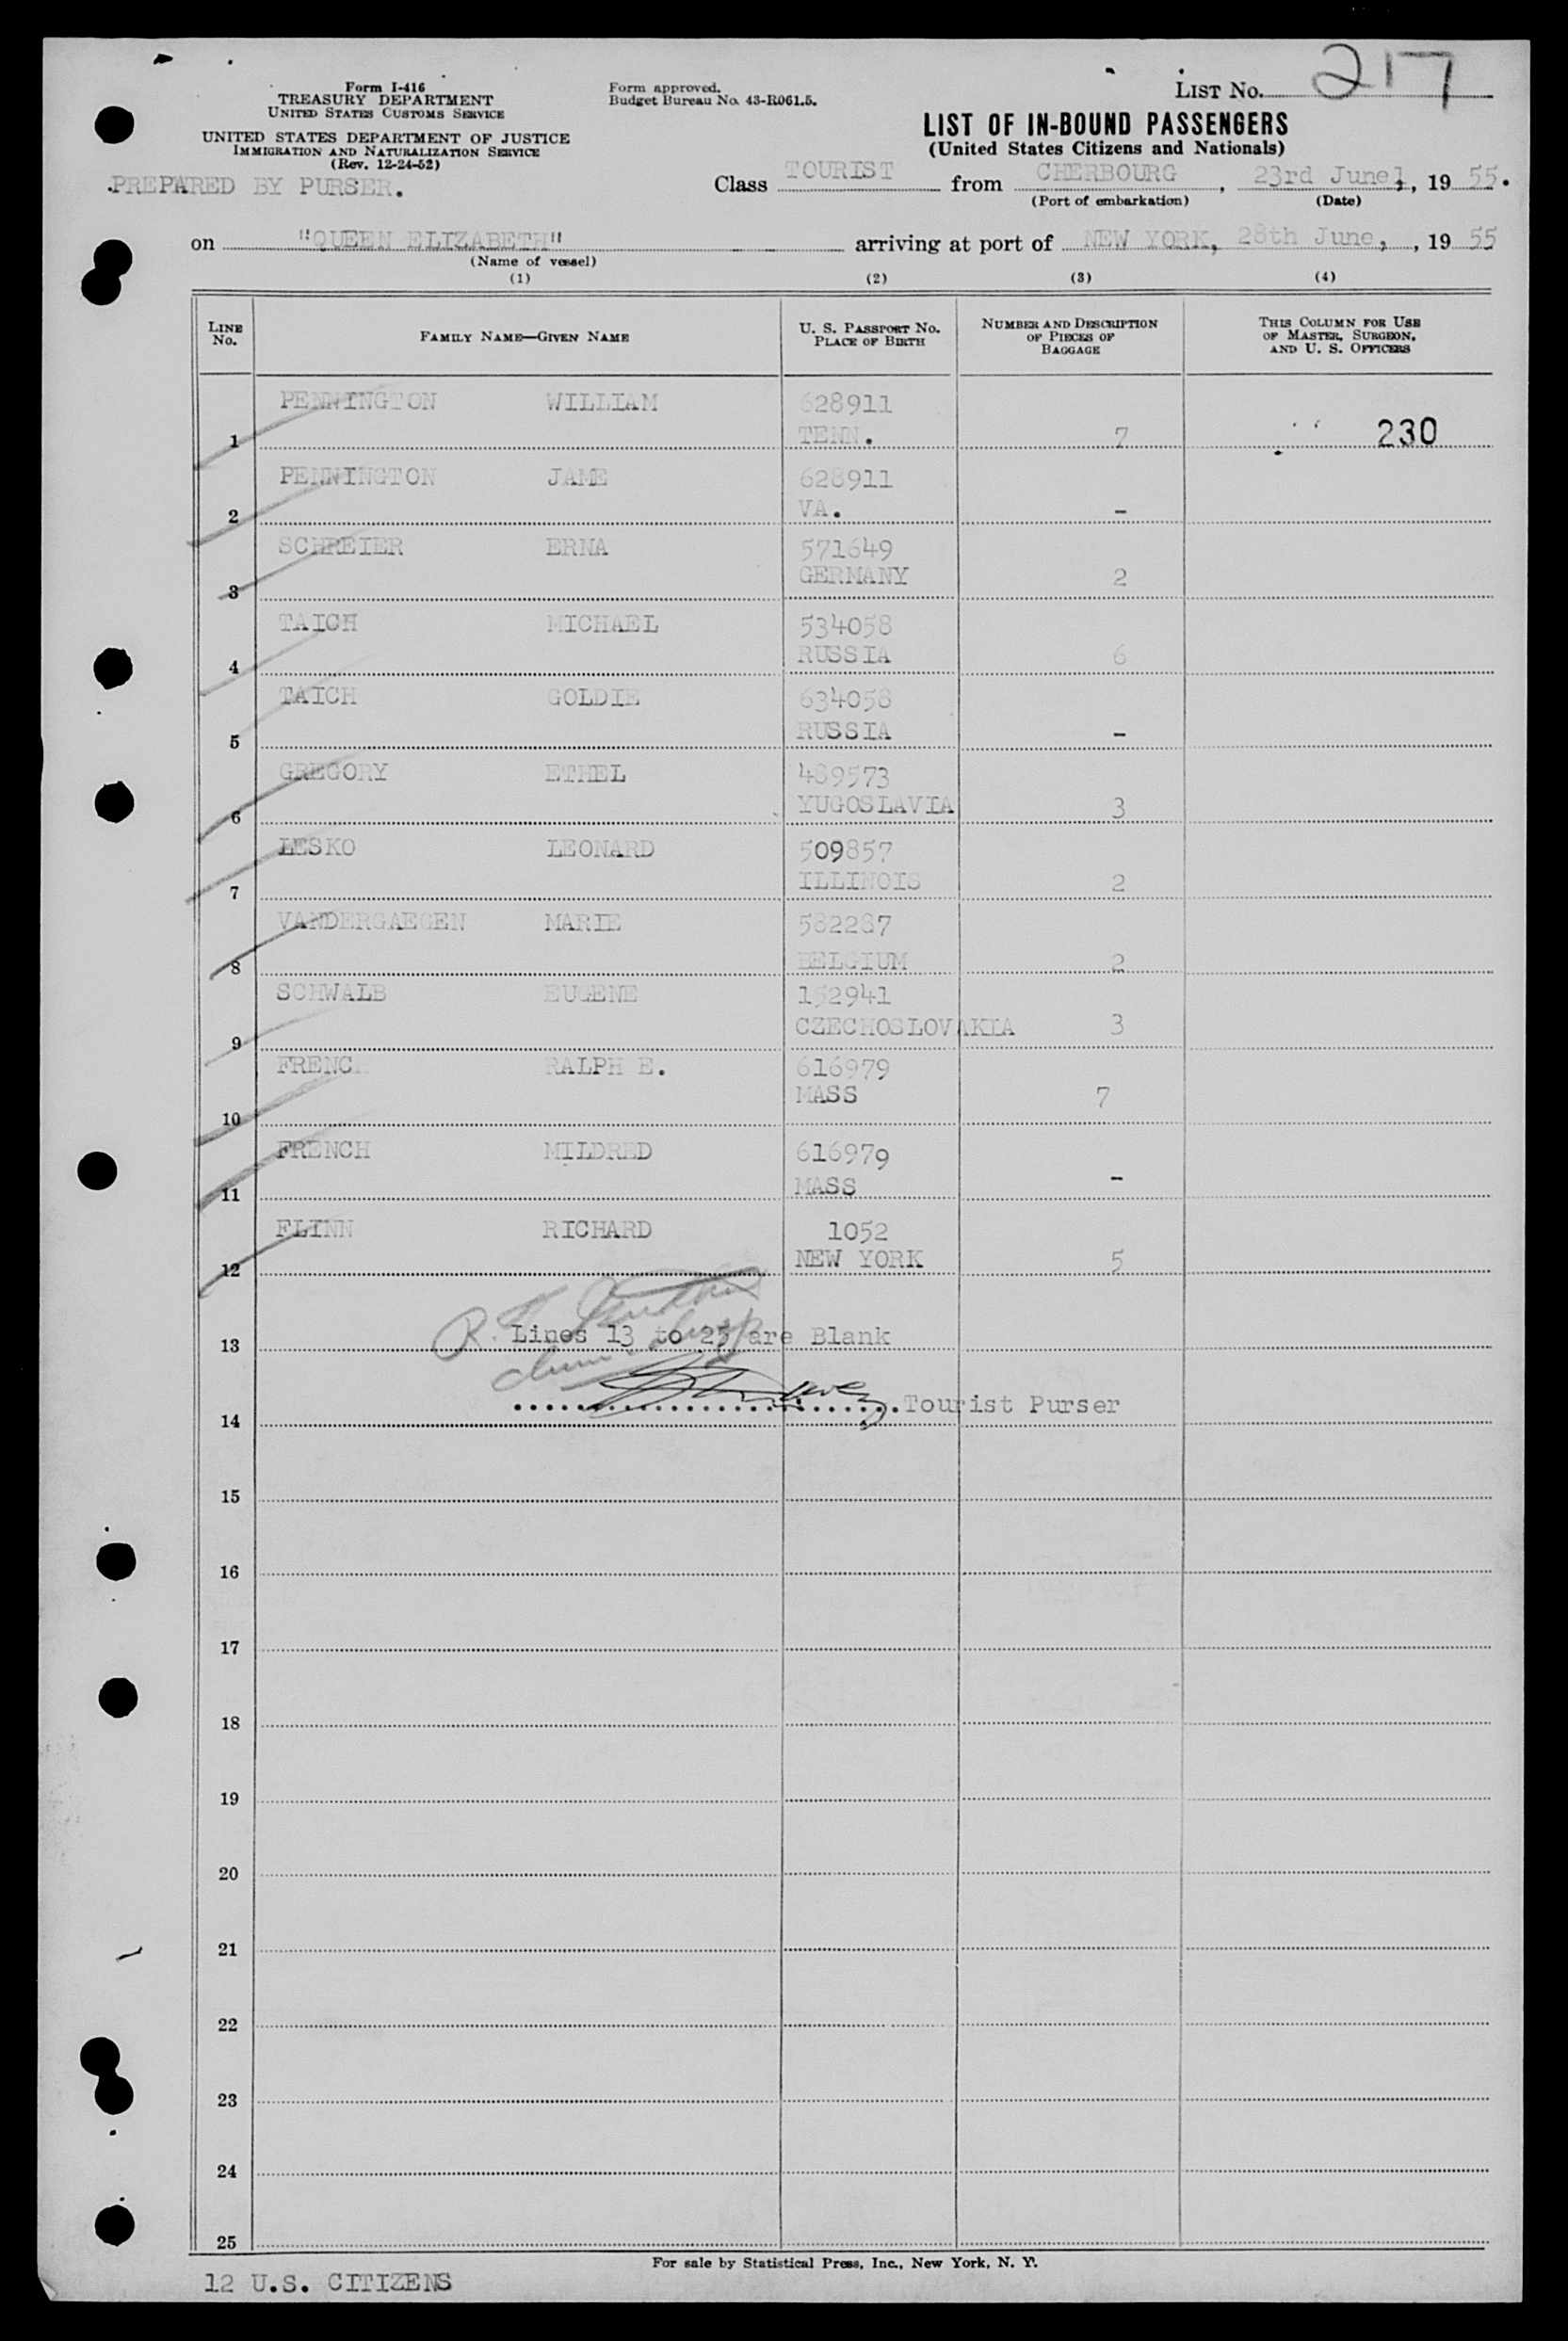 LIST No. 217
Form I-416
TREASURY DEPARTMENT
UNITED STATES CUSTOMS SERVICE
Form approved.
Budget Bureau No. 43-R061.5.
UNITED STATES DEPARTMENT OF JUSTICE
IMMIGRATION AND NATURALIZATION SERVICE
(Rev. 12-24-52)
LIST OF IN-BOUND PASSENGERS
(United States Citizens and Nationals)
.PREPARED BY PURSER.
Class TOURIST from CHERBOURG, 23rd June, 1955.
(Port of embarkation) (Date)
on "QUEEN ELIZABETH" arriving at port of NEW YORK, 28th June, , 1955
(Name of vessel)
(1) (2) (3) (4)
LINE No. FAMILY NAME—GIVEN NAME U. S. PASSPORT No. PLACE OF BIRTH NUMBER AND DESCRIPTION OF PIECES OF BAGGAGE THIS COLUMN FOR USE OF MASTER, SURGEON, AND U. S. OFFICERS
PENNINGTON WILLIAM 628911
1 TENN. 7 230
PENNINGTON JAME 628911
2 VA. -
SCHREIER ERNA 571649
3 GERMANY 2
TAICH MICHAEL 534058
4 RUSSIA 6
TAICH GOLDIE 634058
5 RUSSIA -
GREGORY ETHEL 489573
6 YUGOSLAVIA 3
LESKO LEONARD 509857
7 ILLINOIS 2
VANDERGAEGEN MARIE 582287
8 BELGIUM 2
SCHWALB EUGENE 152941
9 CZECHOSLOVAKIA 3
FRENCH RALPH E. 616979
10 MASS 7
FRENCH MILDRED 616979
11 MASS -
FLINN RICHARD 1052
12 NEW YORK 5
13 Lines 13 to 25 are Blank
14 Tourist Purser
15
16
17
18
19
20
21
22
23
24
25
For sale by Statistical Press, Inc., New York, N. Y.
12 U.S. CITIZENS